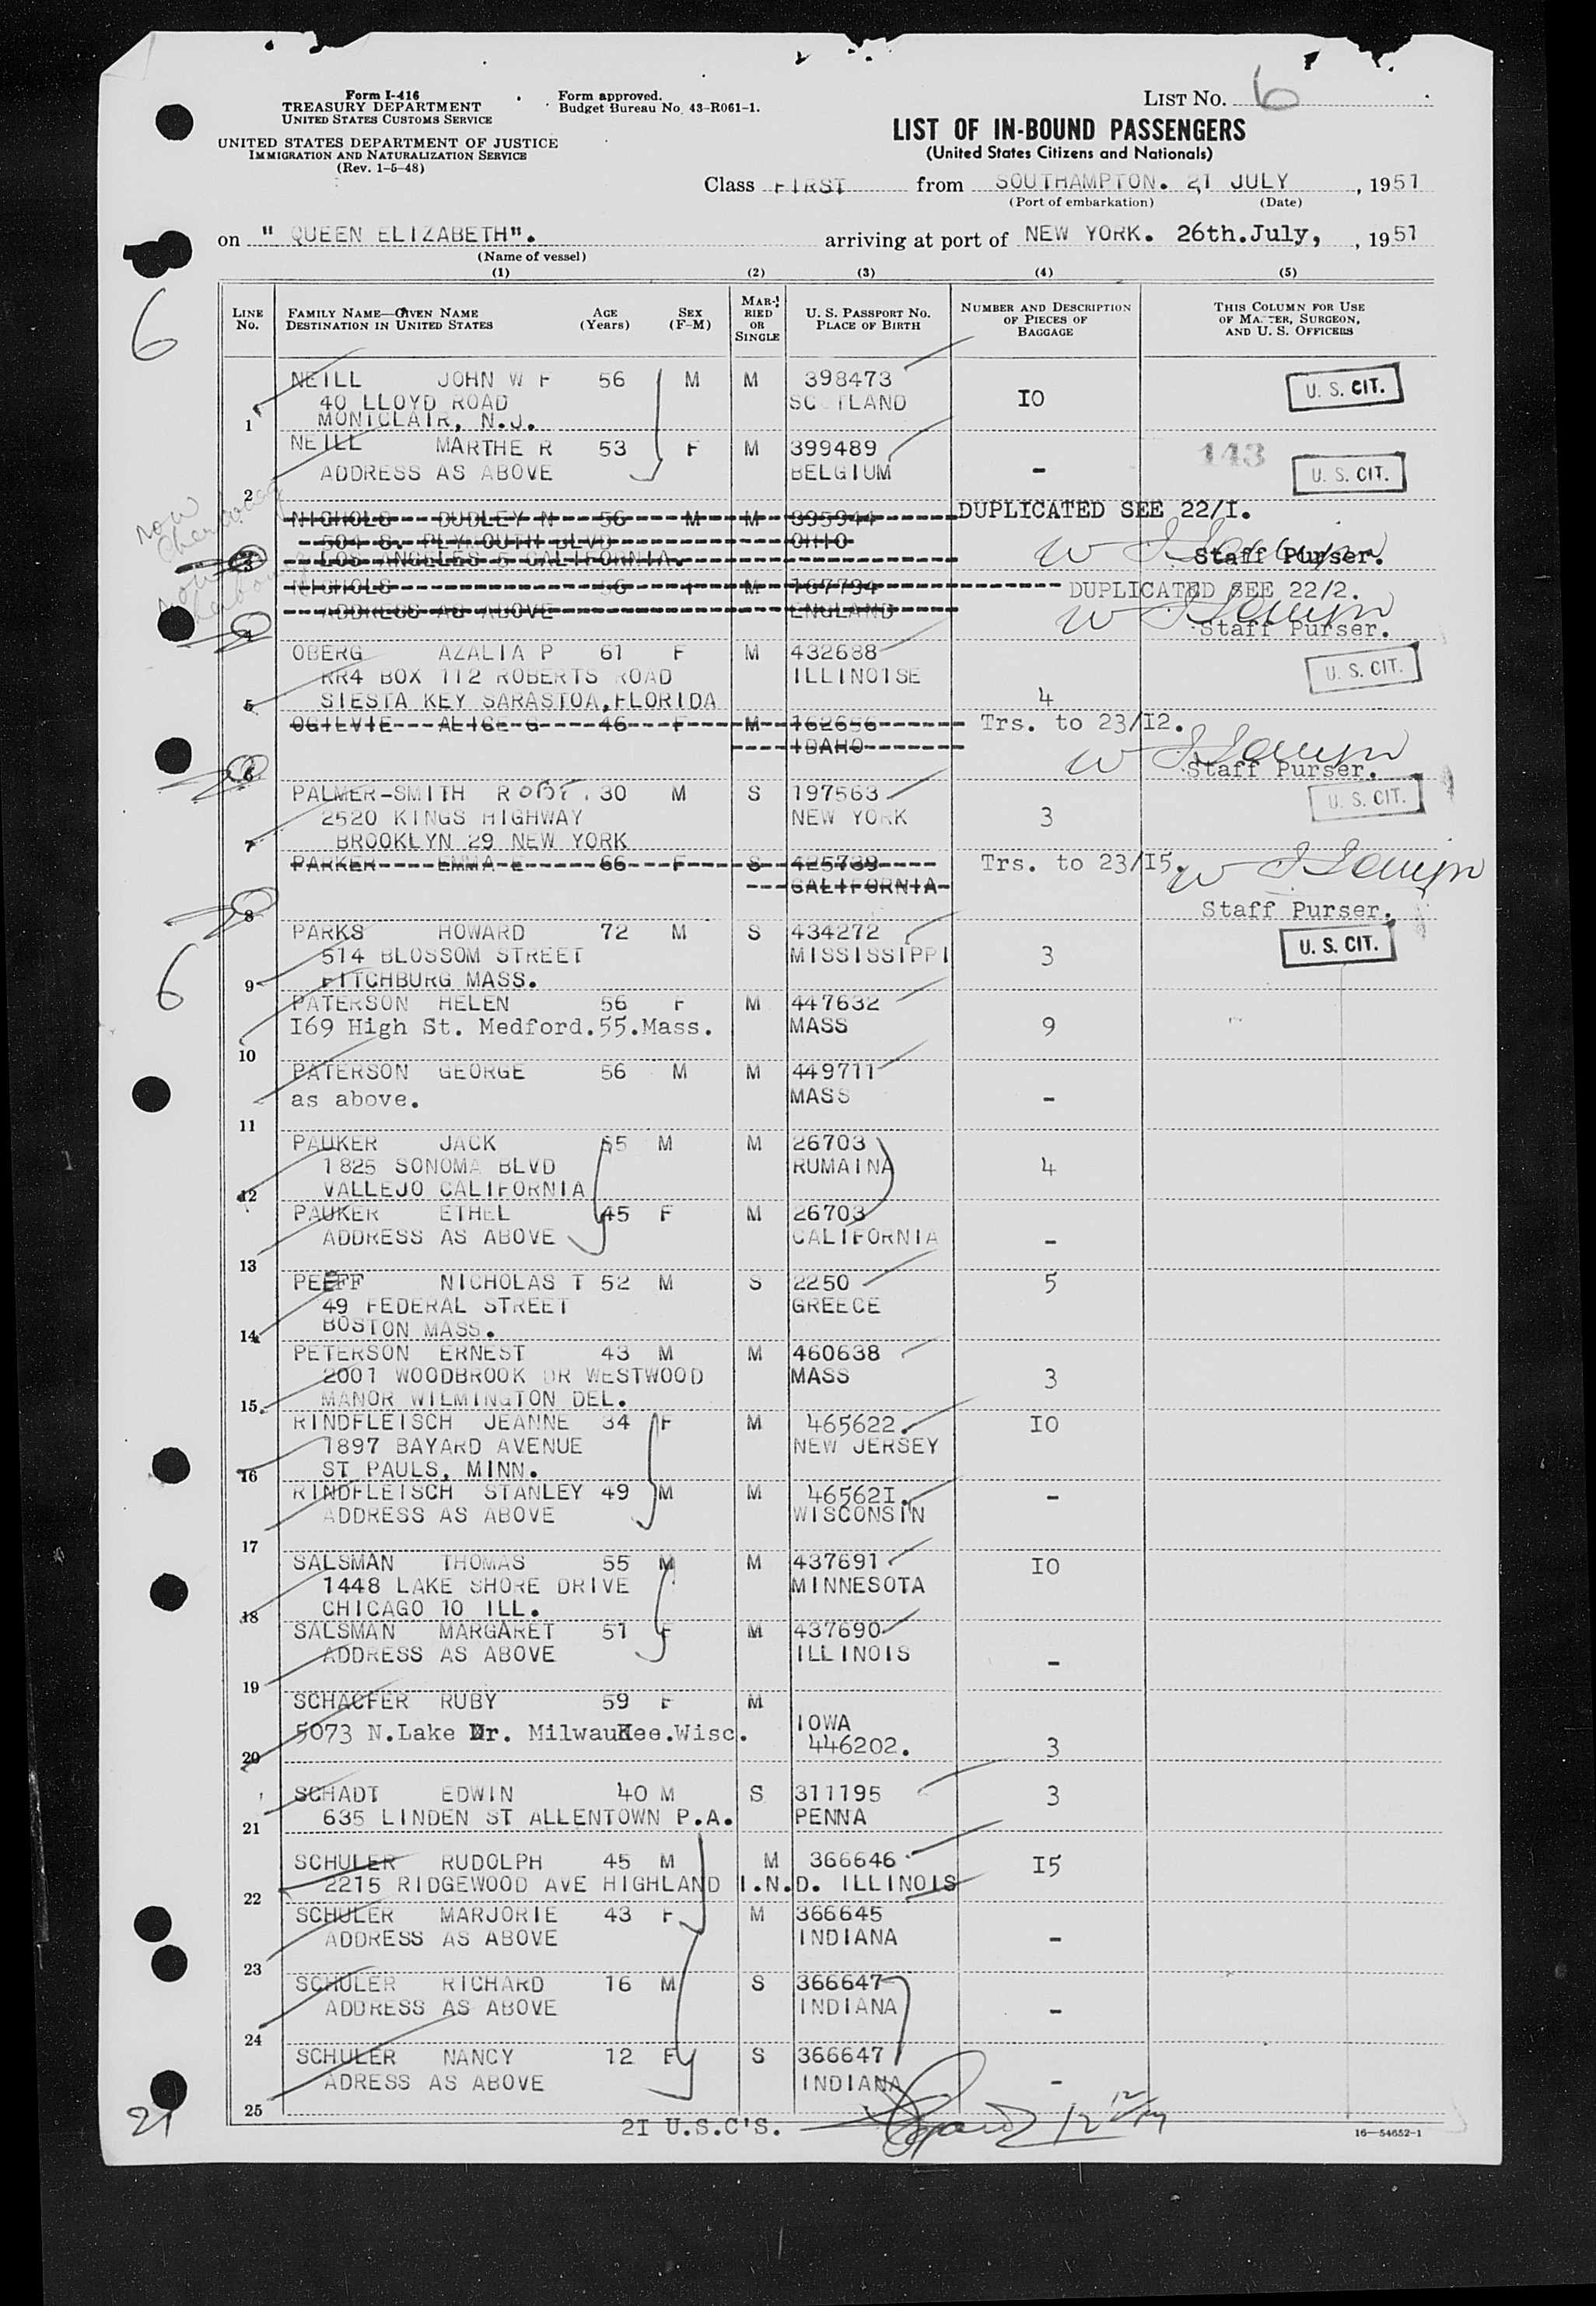 Form I-416
TREASURY DEPARTMENT
UNITED STATES CUSTOMS SERVICE
UNITED STATES DEPARTMENT OF JUSTICE
IMMIGRATION AND NATURALIZATION SERVICE
(Rev. 1-5-48)
Form approved.
Budget Bureau No. 43-R061-1.
LIST NO. 6
LIST OF IN-BOUND PASSENGERS
(United States Citizens and Nationals)
Class FIRST from SOUTHAMPTON. 21 JULY, 1951
(Port of embarkation) (Date)
on " QUEEN ELIZABETH". arriving at port of NEW YORK. 26th.July, , 1951
(Name of vessel)
(1) (2) (3) (4) (5)
LINE No. FAMILY NAME—GIVEN NAME DESTINATION IN UNITED STATES AGE (Years) SEX (F-M) MARRIED OR SINGLE U. S. PASSPORT NO. PLACE OF BIRTH NUMBER AND DESCRIPTION OF PIECES OF BAGGAGE THIS COLUMN FOR USE OF MASTER, SURGEON, AND U. S. OFFICERS
6
NEILL JOHN W F 56 M M 398473 U. S. CIT.
40 LLOYD ROAD SCOTLAND IO
1 MONTCLAIR, N.J.
NEILL MARTHE R 53 F M 399489 143
ADDRESS AS ABOVE BELGIUM - U. S. CIT.
2
now Cherbourg
NICHOLS DUDLEY N 56 M M 395944 DUPLICATED SEE 22/I.
504 S. PLYMOUTH BLVD OHIO
3 LOS ANGELES 5 CALIFORNIA. Staff Purser.
NICHOLS 56 F M 167794 DUPLICATED SEE 22/2.
ADDRESS AS ABOVE ENGLAND
4 Staff Purser.
OBERG AZALIA P 61 F M 432688
RR4 BOX 112 ROBERTS ROAD ILLINOISE U. S. CIT.
5 SIESTA KEY SARASTOA,FLORIDA 4
OGILVIE ALICE G 46 F M 162656 Trs. to 23/I2.
IDAHO
6 Staff Purser.
PALMER-SMITH ROBT. 30 M S 197563 U. S. CIT.
2520 KINGS HIGHWAY NEW YORK 3
7 BROOKLYN 29 NEW YORK
PARKER EMMA E 66 F S 425789 Trs. to 23/I5.
CALIFORNIA
8 Staff Purser.
PARKS HOWARD 72 M S 434272 U. S. CIT.
514 BLOSSOM STREET MISSISSIPPI 3
9 FITCHBURG MASS.
6
PATERSON HELEN 56 F M 447632
I69 High St. Medford.55.Mass. MASS 9
10
PATERSON GEORGE 56 M M 449711
as above. MASS -
11
PAUKER JACK 55 M M 26703
1825 SONOMA BLVD RUMAINA 4
12 VALLEJO CALIFORNIA
PAUKER ETHEL 45 F M 26703
ADDRESS AS ABOVE CALIFORNIA -
13
PEEFF NICHOLAS T 52 M S 2250 5
49 FEDERAL STREET GREECE
14 BOSTON MASS.
PETERSON ERNEST 43 M M 460638
2001 WOODBROOK DR WESTWOOD MASS 3
15 MANOR WILMINGTON DEL.
RINDFLEISCH JEANNE 34 F M 465622. IO
1897 BAYARD AVENUE NEW JERSEY
16 ST PAULS, MINN.
RINDFLEISCH STANLEY 49 M M 46562I. -
ADDRESS AS ABOVE WISCONSIN
17
SALSMAN THOMAS 55 M M 437691 IO
1448 LAKE SHORE DRIVE MINNESOTA
18 CHICAGO 10 ILL.
SALSMAN MARGARET 51 F M 437690
ADDRESS AS ABOVE ILLINOIS -
19
SCHACFER RUBY 59 F M
5073 N.Lake Dr. Milwaukee.Wisc. IOWA
20 446202. 3
SCHADT EDWIN 40 M S 311195 3
635 LINDEN ST ALLENTOWN P.A. PENNA
21
SCHULER RUDOLPH 45 M M 366646 I5
2215 RIDGEWOOD AVE HIGHLAND I.N.D. ILLINOIS
22
SCHULER MARJORIE 43 F M 366645
ADDRESS AS ABOVE INDIANA -
23
SCHULER RICHARD 16 M S 366647
ADDRESS AS ABOVE INDIANA -
24
SCHULER NANCY 12 F S 366647
ADRESS AS ABOVE INDIANA -
25
21 2I U.S.C'S.
16—54652-1